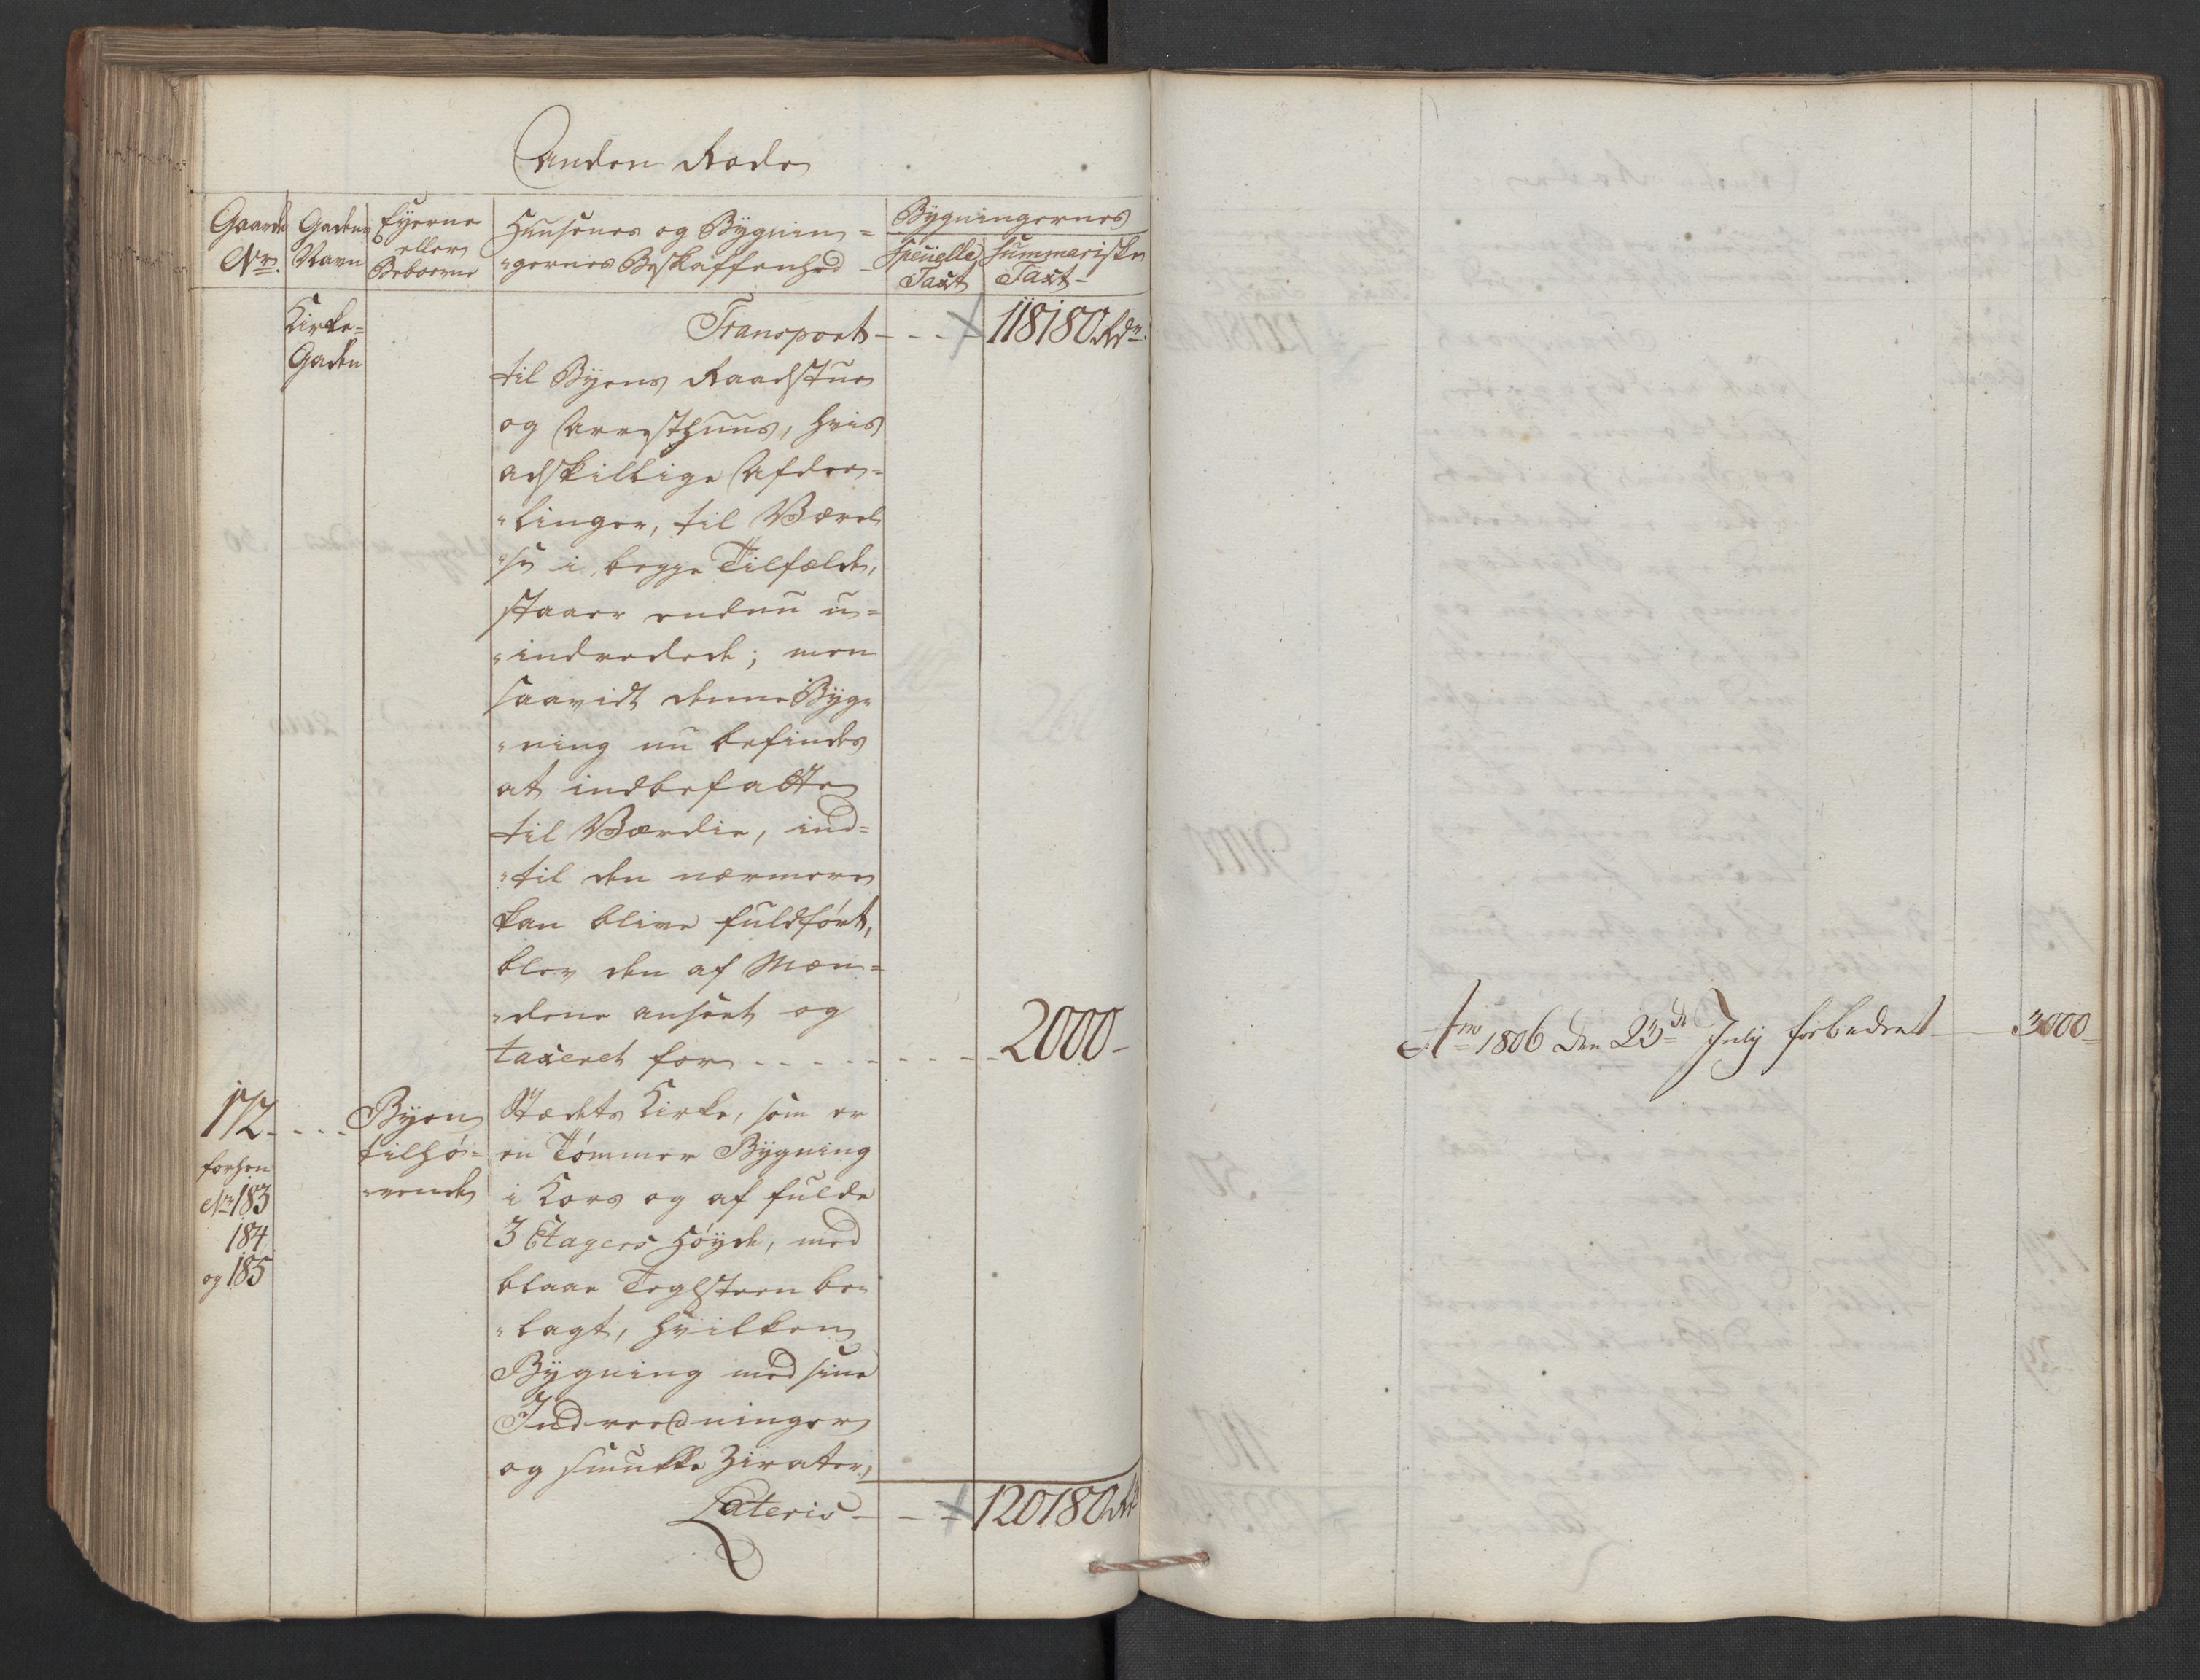 Anden Rode
Gaards No.
Gadens Navn
Eyerne eller Beboerne
Huusenes og Bygnin=
"gernes Beskaffenhed
Bygningernes
Speuielle Taxt
Summariske Taxt
Kirke=
Gaden
Transport - - - 118180 Rdr.
til Byens Raadstue
og Arresthuus, hvis
adskillige Afdee=
"linger, til Værel
"se i begge Tilfælde,
staaer endnu u=
"indredede; men
saavidt denne Byg=
"ning nu befindes
at indbefatte
til Værdie, ind=
"til den nærmere
kan blive fuldført,
blev den af Mæn=
"dene anseet og
taxeret for - - - - - - - - 2000 -
172 - - - - Byen
tilhø=
"rende
forhen
No 183
184
og 185
Stædets Kirke, som er
en Tømmer Bygning
i Kors og af fulde
3 Etagers Høyde, med
blaae Teglsteen be=
"lagt, hvilken
Bygning med sine
Indreedninger
og smukke Zirater,
Lateris - - - 120180 Rdr
Ao 1806 den 23de July forbedret - 3000 -